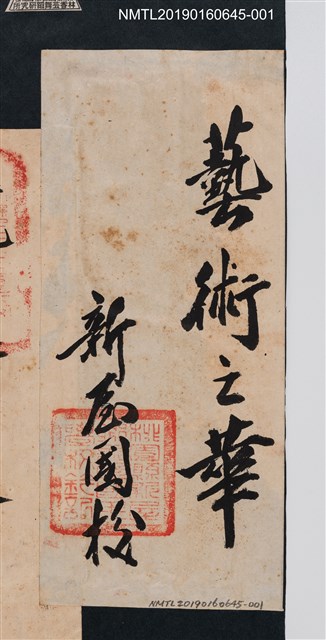 NMTL20190160645-001
藝術之華
新屋國校
NMTL20190160645-001